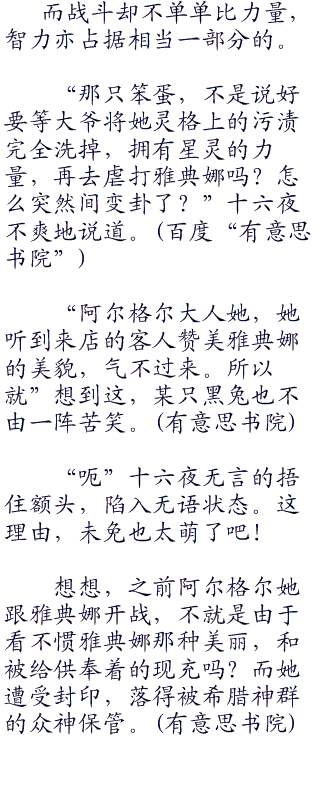 而战斗却不单单比力量，
智力亦占据相当一部分的。
“那只笨蛋，不是说好
要等大爷将她灵格上的污渍
完全洗掉，拥有星灵的力
量，再去虐打雅典娜吗？怎
么突然间变卦了？”十六夜
不爽地说道。(百度“有意思
书院”)
“阿尔格尔大人她，她
听到来店的客人赞美雅典娜
的美貌，气不过来。所以
就”想到这，某只黑兔也不
由一阵苦笑。(有意思书院)
“呃”十六夜无言的捂
住额头，陷入无语状态。这
理由，未免也太萌了吧！
想想，之前阿尔格尔她
跟雅典娜开战，不就是由于
看不惯雅典娜那种美丽，和
被给供奉着的现充吗？而她
遭受封印，落得被希腊神群
的众神保管。(有意思书院)